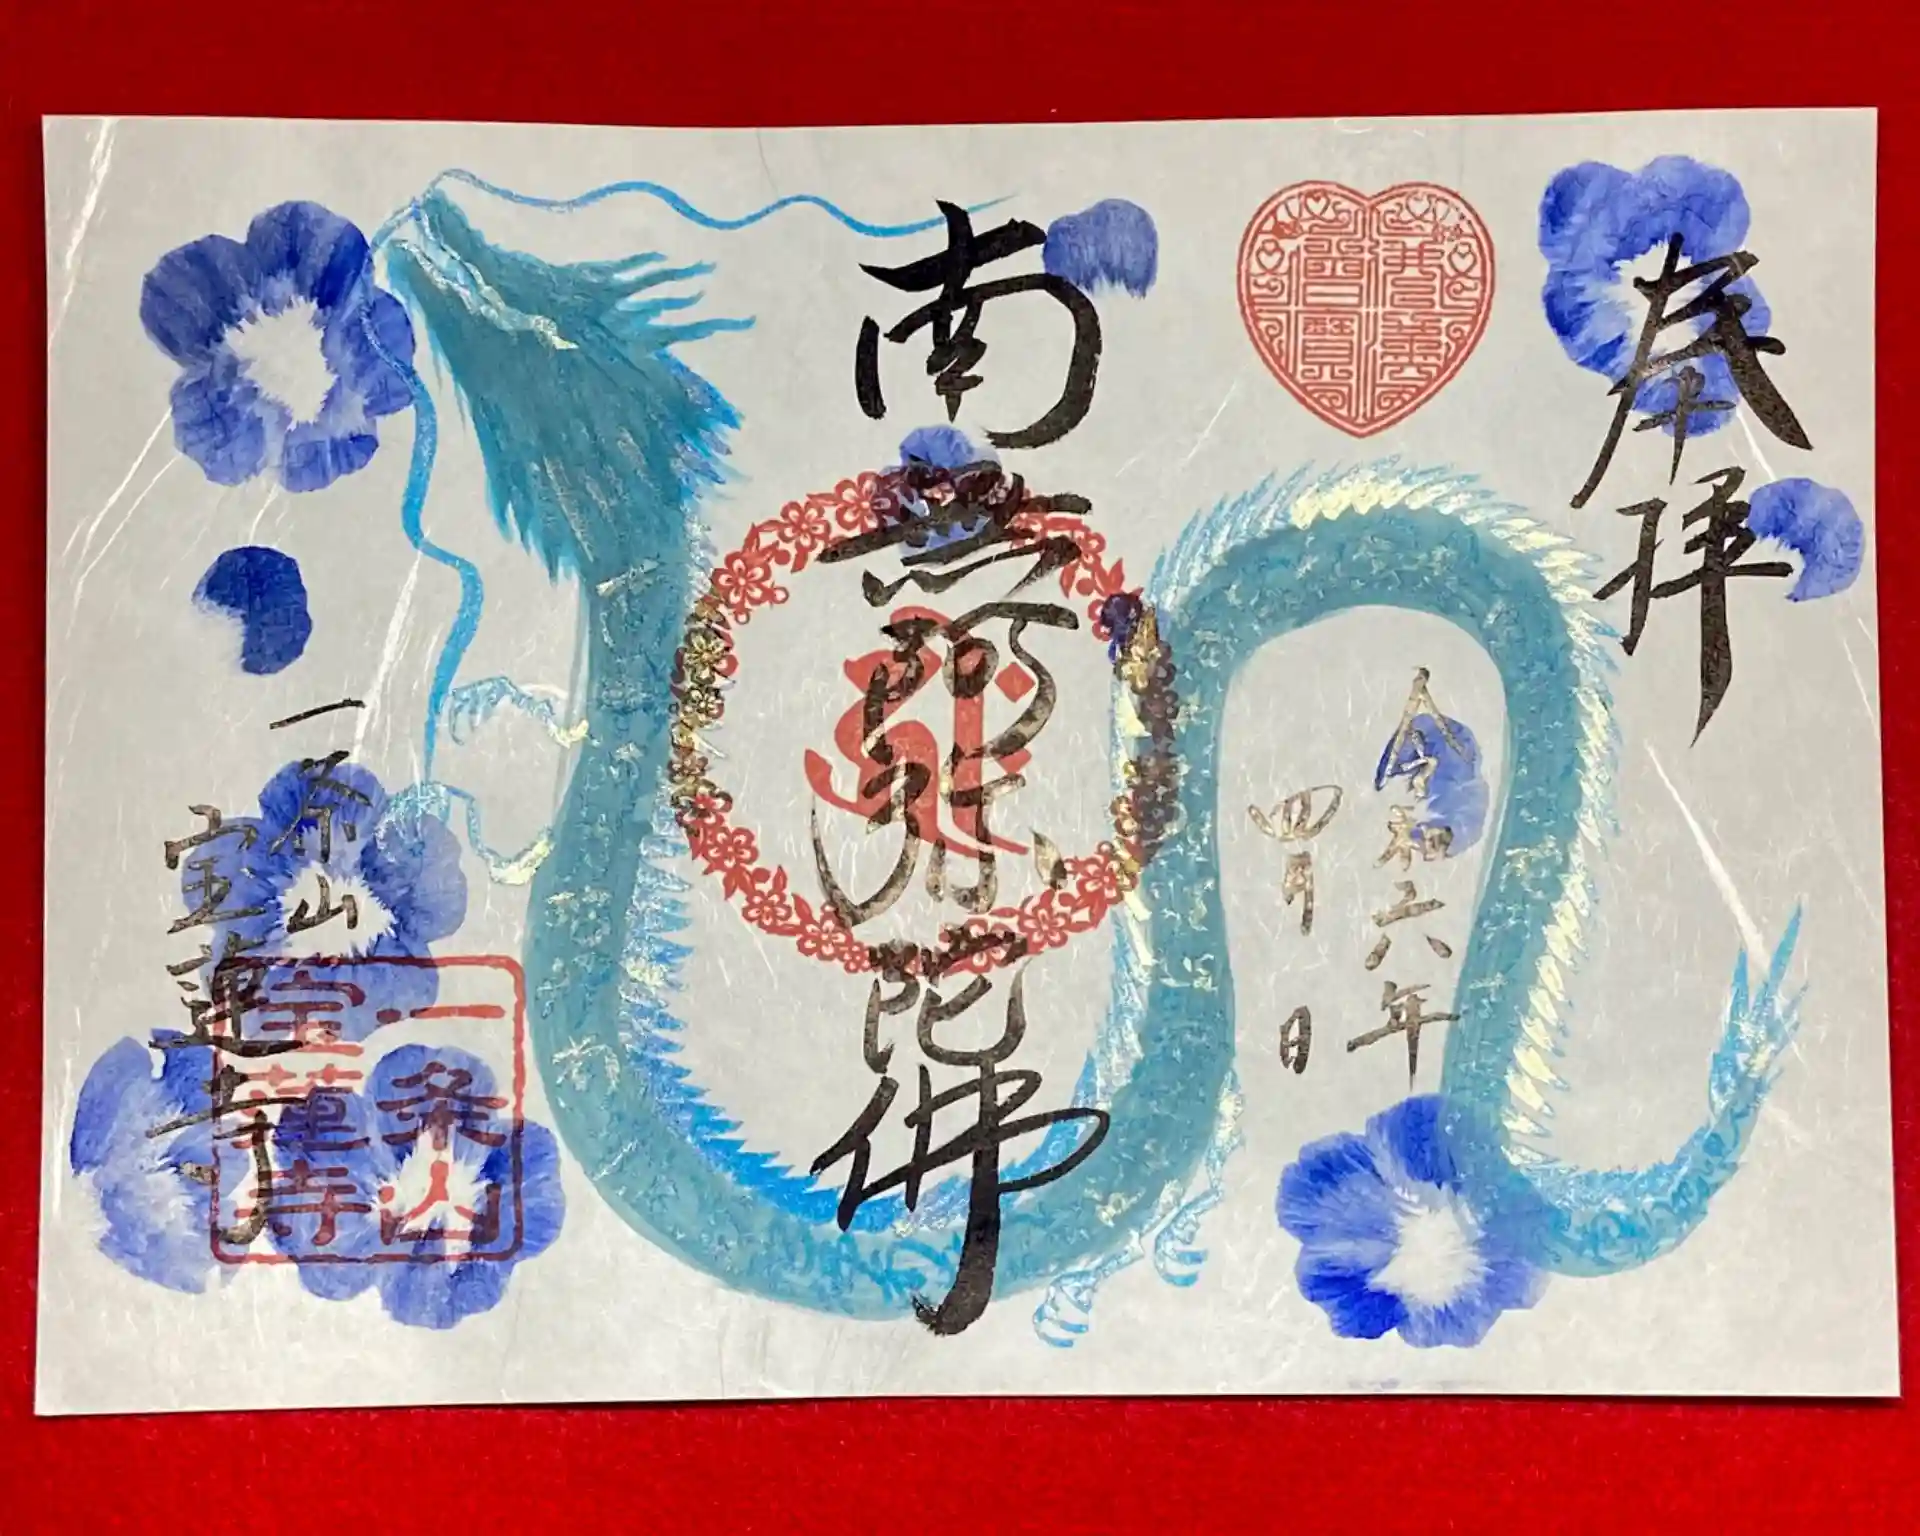 奉拝
令和六年
四月 日
南無阿弥陀佛
一条山
宝蓮寺
一条山
宝蓮寺